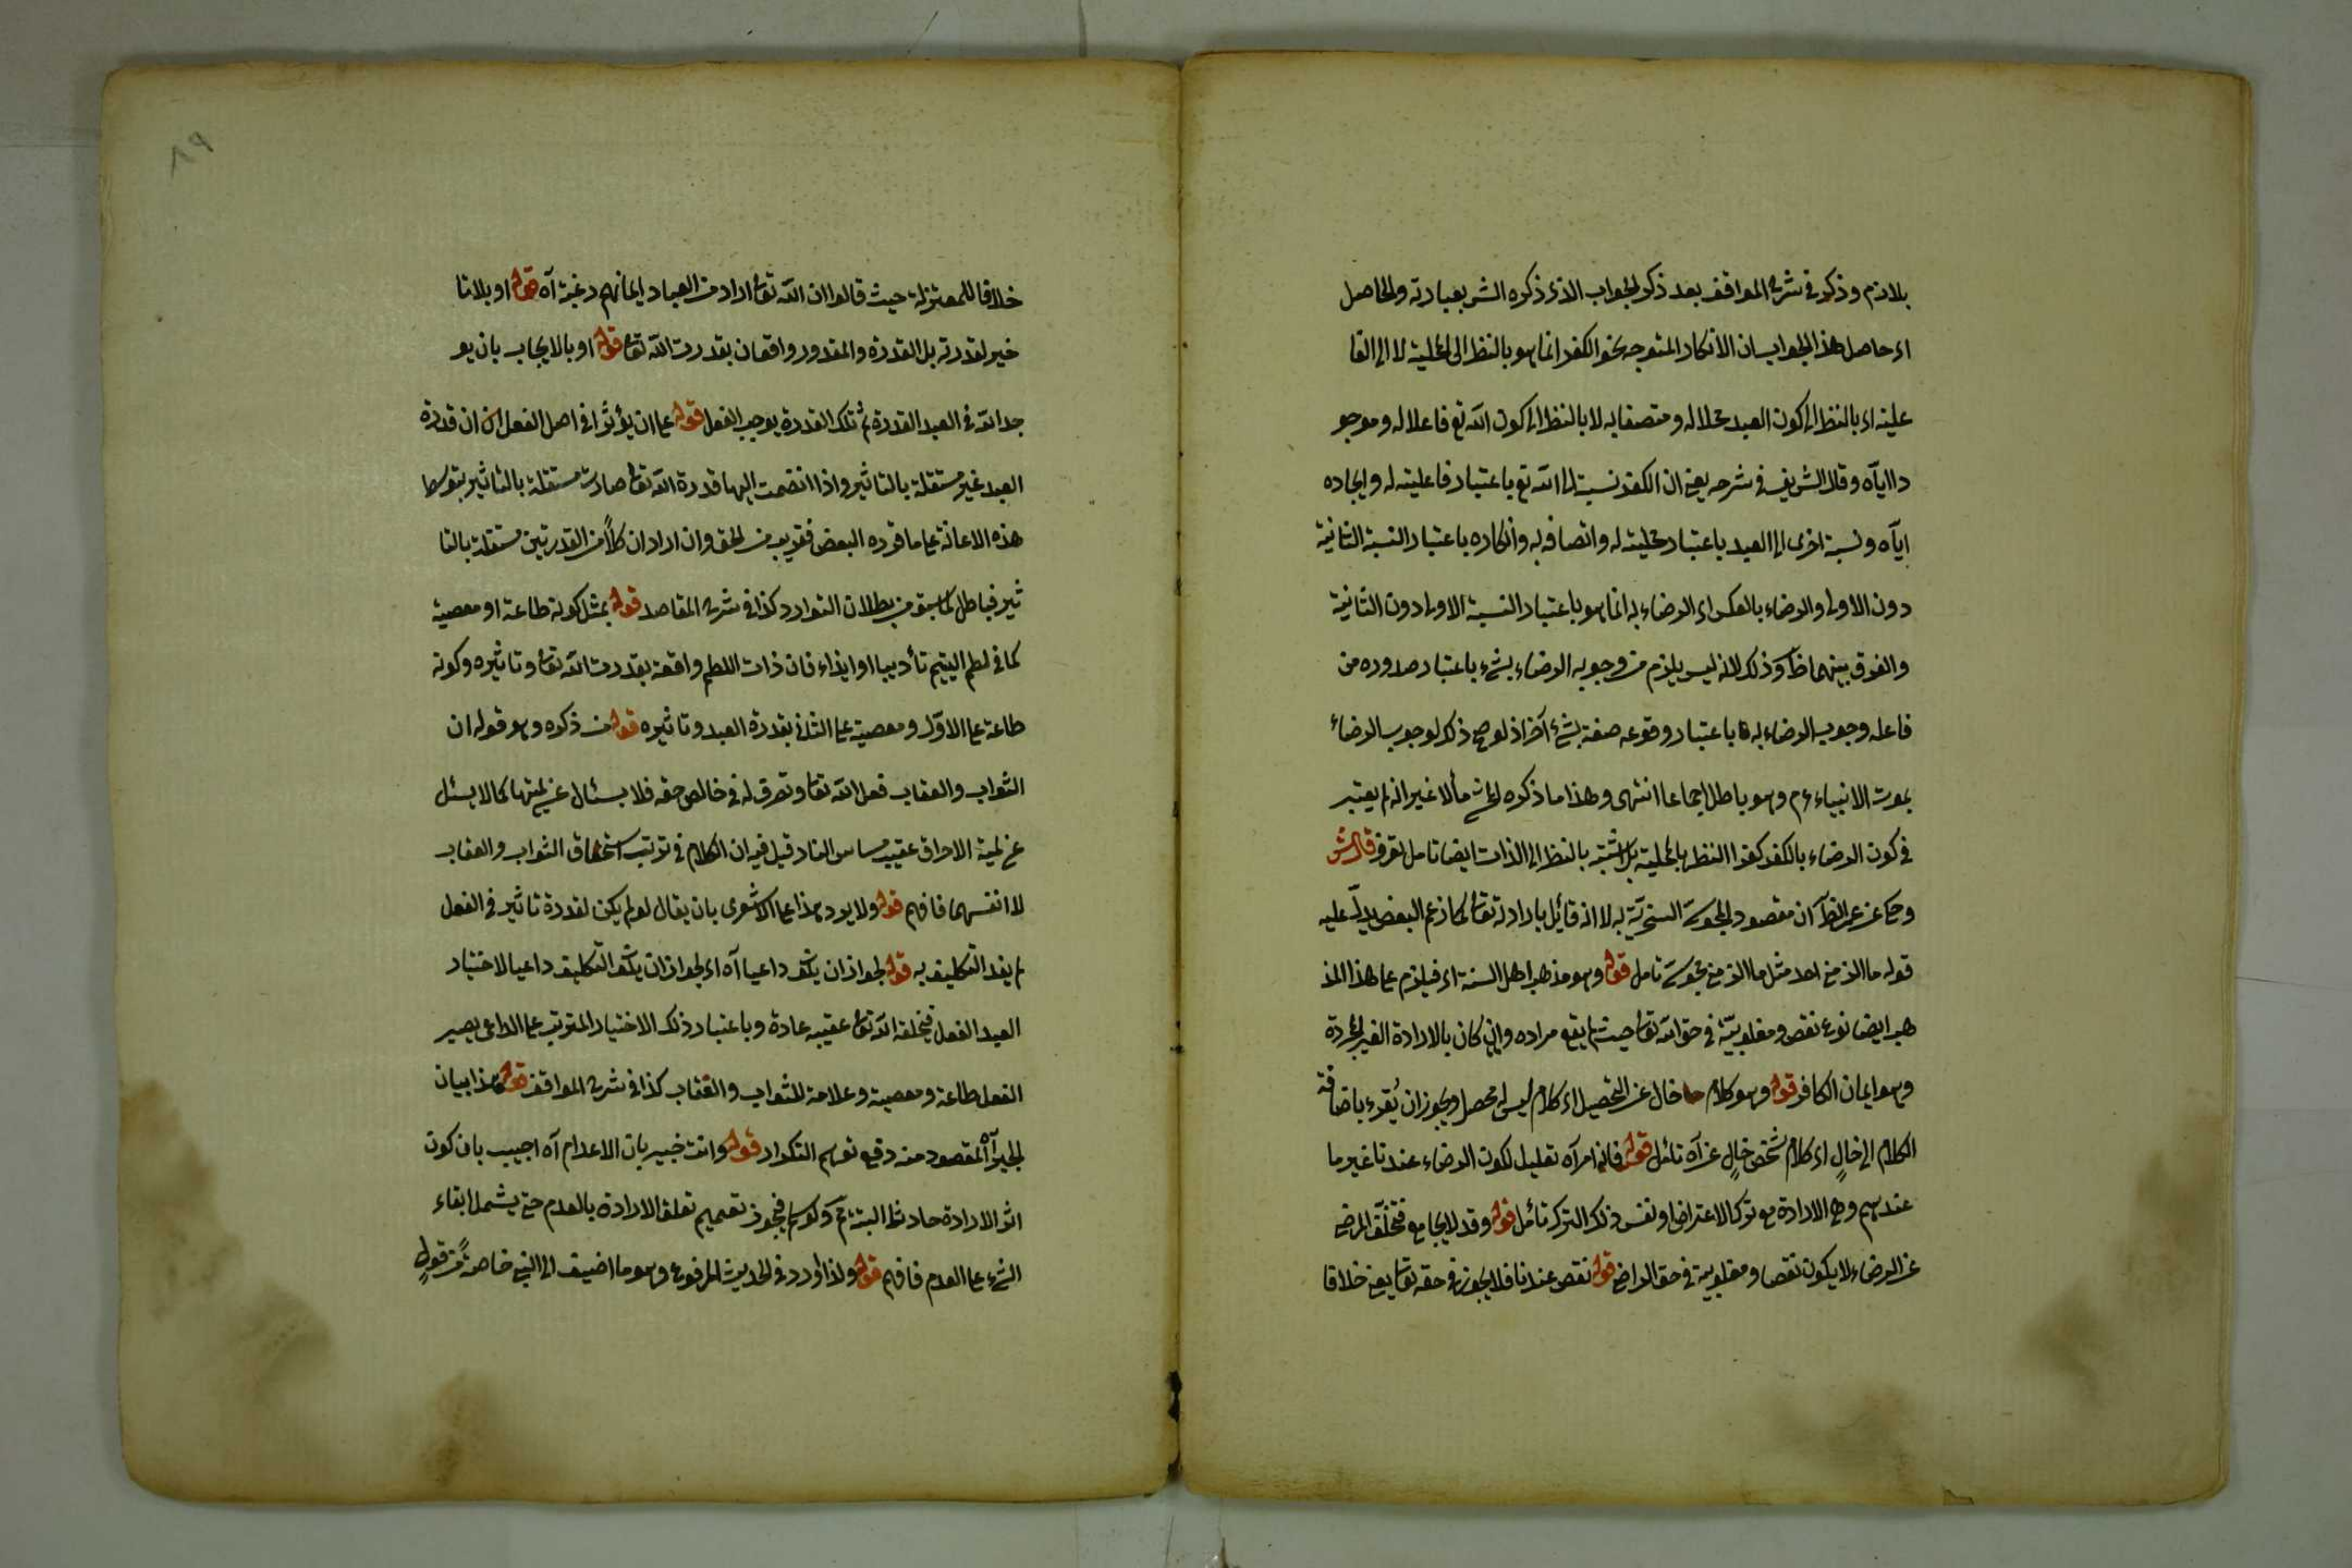 بلازم وذكر في شرح المواقف بعد ذكر الجواب الذي ذكره الشر بعبارته والحاصل
اي حاصل هذا الجواب ان الانكار المتوجه نحو الكفر انما هو بالنظر الى المحلية لا الى الفا
علية اي بالنظر الى كون العبد محلا له ومتصفا به لا بالنظر الى كون الله تع فاعلا له وموجو
دا اياه وقال الشريف في شرحه يعني ان للكفر نسبة الى الله تع باعتبار فاعليته له وايجاده
اياه ونسبة اخرى الى العبد باعتبار محليته له واتصافه به وانكاره باعتبار النسبة الثانية
دون الاولى والرضاء بالعكس اي الرضاء به انما هو باعتبار النسبة الاولى دون الثانية
والفرق بينهما ظ وذلك لانه ليس يلزم من وجوب الرضاء بشيء باعتبار صدوره من
فاعله وجوب الرضاء به باعتبار وقوعه صفة بشيء آخر اذ لو صح ذلك لوجب الرضاء
بموت الانبياء ءم وهو باطل اجماعا انتهى وهذا ما ذكره مألا غير انه لم يعتبر
في كون الرضاء بالكفر كفرا النظر بالمحلية بل بالنظر الى الذات ايضا تامل تعرف قال ش
وحكى عن عمر الظ ان مقصود المجوسي السخرية به لا انه قائل بارادته تعالى كما زعم البعض يدل عليه
قوله ما الزمني احد مثل ما الزمني مجوسي تامل قوله وهو مذهب اهل السنة اي فيلزم على هذا المذ
هب ايضا نوع نقص ومغلوبية في حق الله تعالى حيث لم يقع مراده وان كان بالارادة الغير المجردة
وهو ايمان الكافر قوله وهو كلام خال عن التحصيل اي كلام ليس له محصل ويجوز ان يقرء باضافة
الكلام الى خال اي كلام شخص خال عن آه تأمل قوله فانه امر آه تعليل لكون الرضاء عندنا غير ما
عندهم وهو الارادة مع ترك الاعتراض او نفس ذلك الترك تأمل قوله وقد لا يجامع فتخلف المرضى
عن الرضاء لا يكون نقصا ومغلوبية في حق الراضي قوله نقص عندنا فلا يجوز في حقه تعالى يعني خلافا
٨٩
خلافا للمعتزلة حيث قالوا ان الله تعالى اراد من العباد ايمانهم رغبة آه قوله او بلا تا
ثير لقدرته بل القدرة والمقدور واقعان بقدرت الله تعالى قوله او بالايجاب بان يو
جد الله في العبد القدرة ثم تلك القدرة يوجب الفعل قوله على ان يؤثرا في اصل الفعل ان قدرة
العبد غير مستقلة بالتاثير واذا انضمت اليها قدرة الله تعالى صارت مستقلة بالتاثير بتوسط
هذه الاعانة على ما قرره البعض فقريب من الحق وان اراد ان كلا من القدرتين مستقلة بالتا
ثير فباطل لما سبق من بطلان التوارد كذا في شرح المقاصد قوله بمثل كونه طاعة او معصية
كما في لطم اليتيم تأديبا او ايذاء فان ذات اللطم واقعة بقدرت الله تعالى وتاثيره وكونه
طاعة على الاول ومعصية على الثاني بقدرة العبد وتاثيره قوله من ذكره وهو قوله ان
الثواب والعقاب فعل الله تعالى وتصرف له في خالص حقه فلا يسئال عن لميتها كما لا يسئل
عن لمية الاحراق عقيب مساس النار قيل فيه ان الكلام في ترتب استحقاق الثواب والعقاب
لا انفسهما فافهم قوله ولا يرد هذا على الاشعرى بان يقال لو لم يكن لقدرة تاثير في الفعل
لم يفد التكليف به قوله لجواز ان يكون داعيا آه اي لجواز ان يكون التكليف داعيا لاختيار
العبد الفعل فيخلقه الله تعالى عقيبه عادة وباعتبار ذلك الاختيار المترتب على الداعى يصير
الفعل طاعة ومعصية وعلامة للثواب والعقاب كذا في شرح المواقف قوله هذا بيان
لجبر آه المقصود منه دفع توهم التكرار قوله وانت خبير بان الاعدام آه اجيب بان كون
اثر الارادة حادثا البتة فيجوز تعميم تعلق الارادة بالعدم حتى يشمل ابقاء
الشيء على العدم فافهم قوله ولذا أورد في الحديث المرفوع وهو ما اضيف الى النبي خاصة من قول